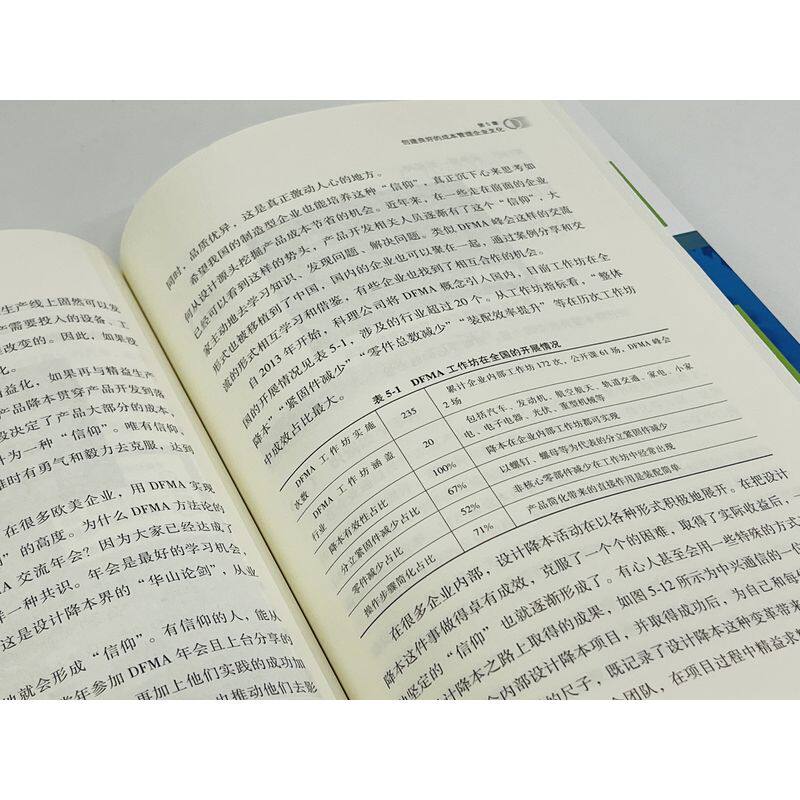 生产线上固然可以发
产需要投入的设备、工
改变的。因此，如果没
化。
益化，如果再与精益生产
产品降本贯穿产品开发到落
段决定了产品大部分的成本，
计为一种“信仰”。唯有信仰，
时有勇气和毅力去克服，达到
在很多欧美企业，用 DFMA 实现
的高度。为什么 DFMA 方法论的
交流年会？因为大家已经达成了
样一种共识。年会是最好的学习机会，
这是设计降本界的“华山论剑”，从业
地就会形成“信仰”。有信仰的人，能从
年参加 DFMA 年会且上台分享的
再加上他们实践的成功加
推动他们去影
第5章
创造良好的成本管理企业文化
同时，品质优异，这是真正激动人心的地方。
希望我国的制造型企业也能培养这种“信仰”，真正沉下心来思考如
何从设计源头挖掘产品成本节省的机会。近年来，在一些走在前面的企业
已经可以看到这样的势头，产品开发相关人员逐渐有了这个“信仰”，大
家主动地去学习知识、发现问题、解决问题。类似 DFMA 峰会这样的交流
形式也被移植到了中国，国内的企业也可以聚在一起，通过案例分享和交
流的形式相互学习和借鉴，有些企业也找到了相互合作的机会。
自 2013 年开始，科理公司将 DFMA 概念引入国内，目前工作坊在全
国的开展情况见表 5-1，涉及的行业超过 20 个。从工作坊指标看，“整体
降本”“紧固件减少”“零件总数减少”“装配效率提升”等在历次工作坊
中成效占比最大。
表 5-1 DFMA 工作坊在全国的开展情况
DFMA 工作坊实施次数 235 累计企业内部工作坊 172 次，公开课 61 场，DFMA 峰会 2 场
DFMA 工作坊涵盖行业 20 包括汽车、发动机、航空航天、轨道交通、家电、小家电、电子电器、光伏、重型机械等
降本有效性占比 100% 降本在企业内部工作坊都可实现
分立紧固件减少占比 67% 以螺钉、螺母等为代表的分立紧固件减少
零件减少占比 52% 非核心零部件减少在工作坊中经常出现
操作步骤简化占比 71% 产品简化带来的直接作用是装配简单
在很多企业内部，设计降本活动在以各种形式积极地展开。在把设计
降本这件事做得卓有成效，克服了一个个的困难，取得了实际收益后，
坚定的“信仰”也就逐渐形成了。有心人甚至会用一些特殊的方式
设计降本之路上取得的成果，如图 5-12 所示为中兴通信的一位
内部设计降本项目，并取得成功后，为自己和每
的尺子，既记录了设计降本这种变革带来
团队，在项目过程中精益求